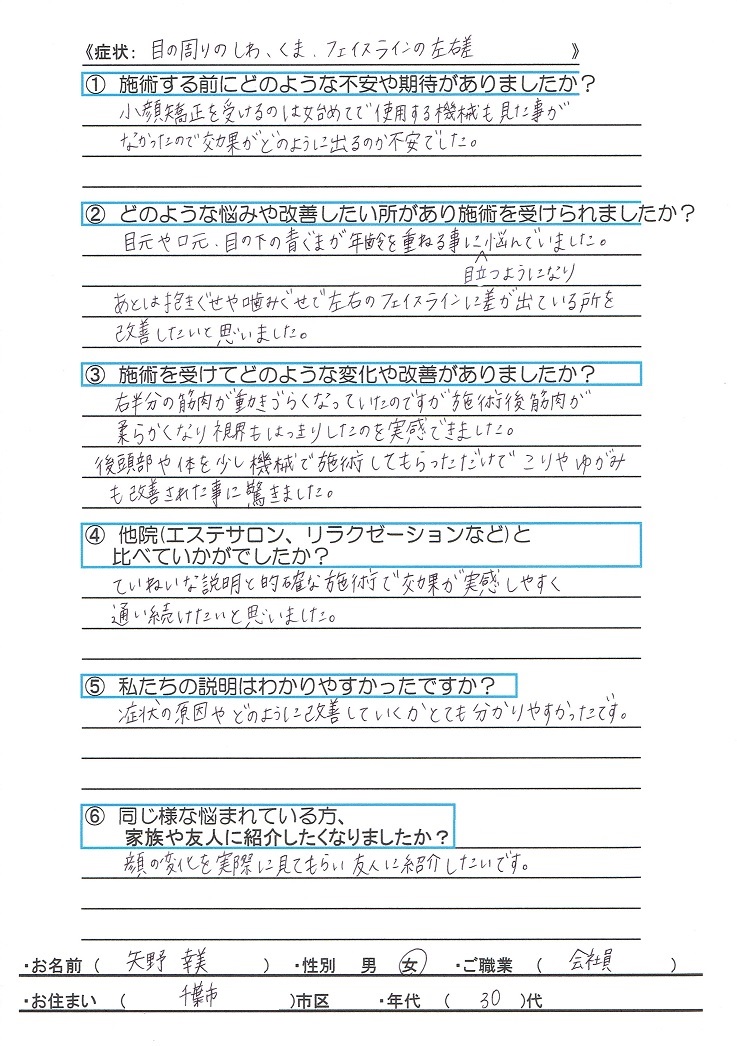 《症状: 目の周りのしわ、くま、フェイスラインの左右差 》
① 施術する前にどのような不安や期待がありましたか?
小顔矯正を受けるのは始めてで使用する機械も見た事が
なかったので効果がどのように出るのか不安でした。
② どのような悩みや改善したい所があり施術を受けられましたか?
目元や口元、目の下の青ぐまが年齢を重ねる事に悩んでいました。
目立つようになり
あとは抱きぐせや噛みぐせで左右のフェイスラインに差が出ている所を
改善したいと思いました。
③ 施術を受けてどのような変化や改善がありましたか?
右半分の筋肉が動きづらくなっていたのですが施術後筋肉が
柔らかくなり視界もはっきりしたのを実感できました。
後頭部や体を少し機械で施術してもらっただけでこりやゆがみ
も改善された事に驚きました。
④ 他院(エステサロン、リラクゼーションなど)と
比べていかがでしたか?
ていねいな説明と的確な施術で効果が実感しやすく
通い続けたいと思いました。
⑤ 私たちの説明はわかりやすかったですか?
症状の原因やどのように改善していくかとても分かりやすかったです。
⑥ 同じ様な悩まれている方、
家族や友人に紹介したくなりましたか?
顔の変化を実際に見てもらい友人に紹介したいです。
・お名前 ( 矢野 幸美 ) ・性別 男 女 ・ご職業 ( 会社員 )
・お住まい ( 千葉市 )市区 ・年代 ( 30 )代